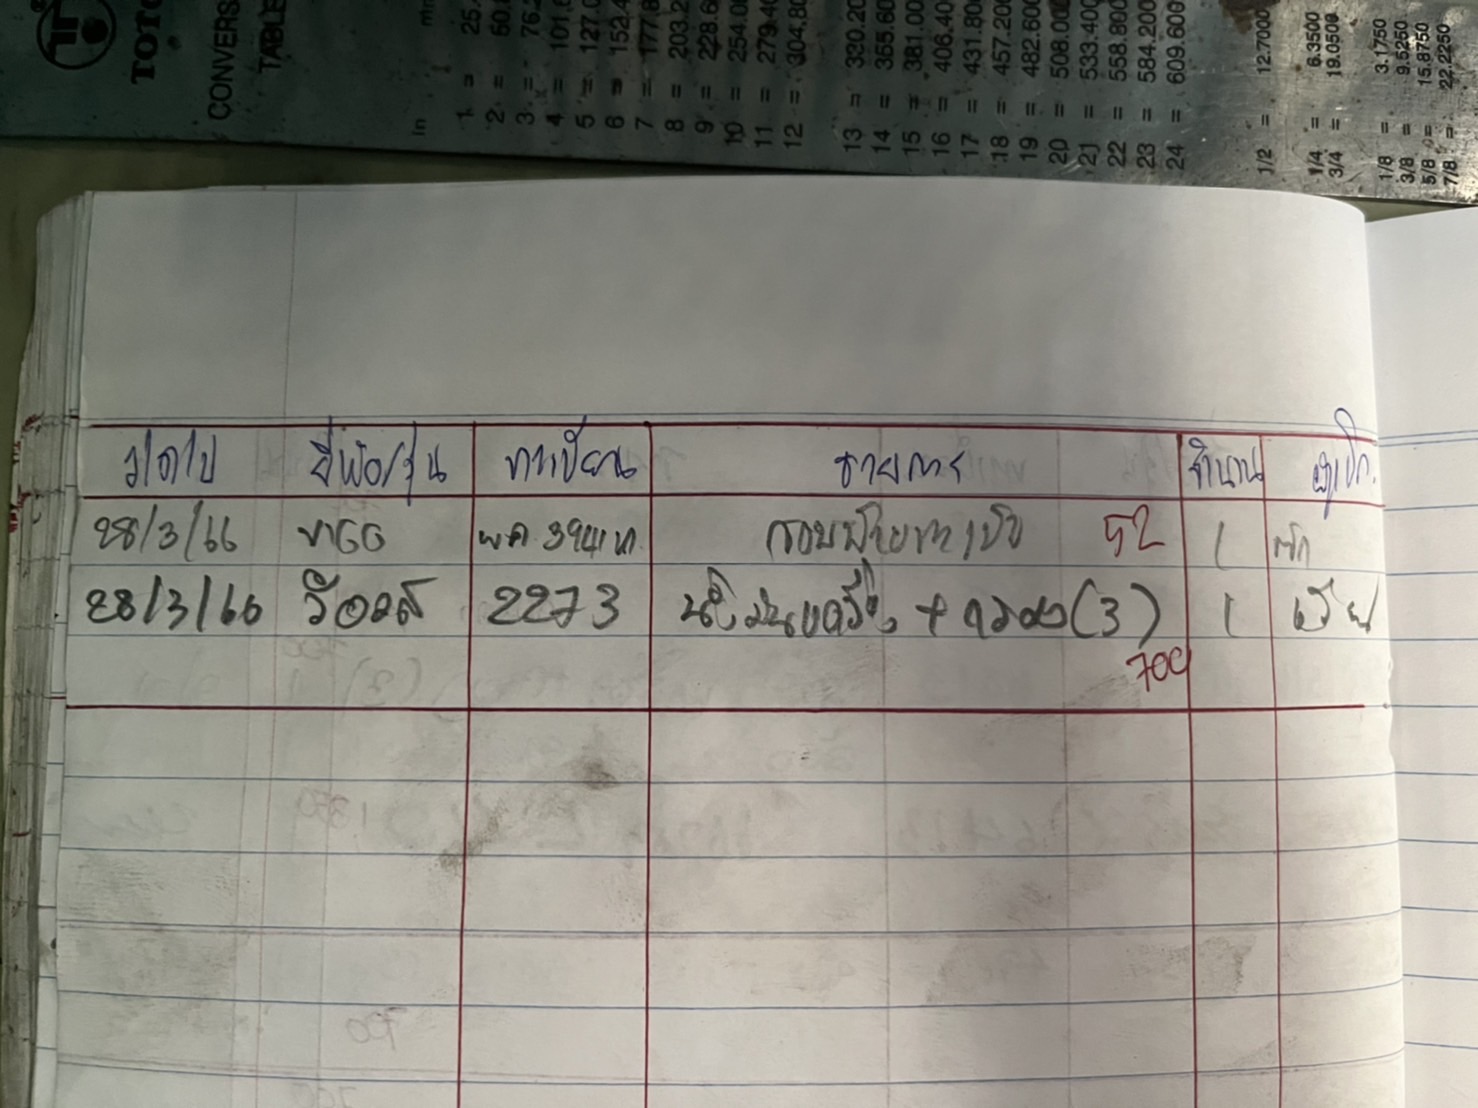 TOTO
CONVERS
TABLE
in
mm
1 = 25.
2 = 50.
3 = 76.
4 = 101.6
5 = 127.0
6 = 152.4
7 = 177.8
8 = 203.2
9 = 228.6
10 = 254.0
11 = 279.40
12 = 304.80
13 = 330.20
14 = 355.60
15 = 381.00
16 = 406.40
17 = 431.80
18 = 457.200
19 = 482.600
20 = 508.000
21 = 533.400
22 = 558.800
23 = 584.200
24 = 609.600
1/2 = 12.7000
1/4 = 6.3500
3/4 = 19.0500
1/8 = 3.1750
3/8 = 9.5250
5/8 = 15.8750
7/8 = 22.2250
ว/ด/ป ยี่ห้อ/รุ่น ทะเบียน รายการ จำนวน ผู้เบิก
28/3/66 กรอบป้ายทะเบียน 52 1
28/3/66 วีออส 2273 น้ำมันเครื่อง + กรอง (3) 1
700